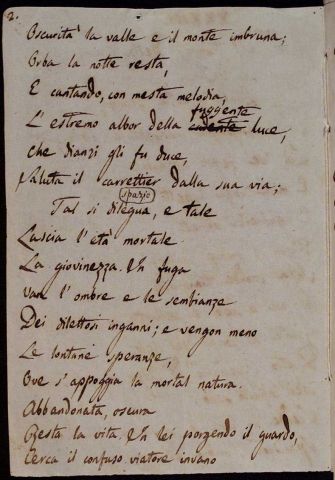 2.
Oscurità la valle e il monte imbruna;
Orba la notte resta,
E cantando, con mesta melodia,
fuggente
L'estremo albor della cadente luce,
Che dianzi gli fu duce,
Saluta il carrettier dalla sua via;
spazio
Tal si dilegua, e tale
Lascia l'età mortale
La giovinezza. In fuga
Van l'ombre e le sembianze
Dei dilettosi inganni; e vengon meno
Le lontane speranze,
Ove s'appoggia la mortal natura.
Abbandonata, oscura
Resta la vita. In lei porgendo il guardo,
Cerca il confuso viatore invano